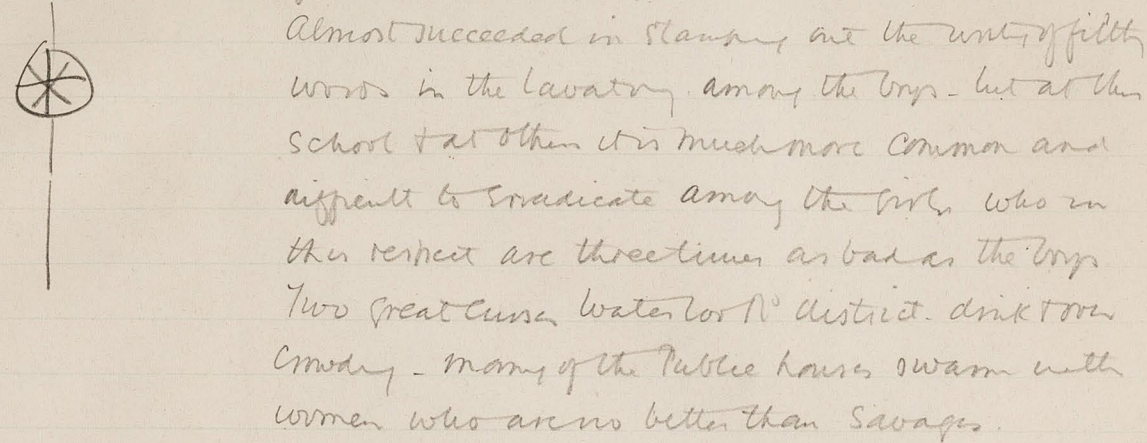 Almost succeeded in stamping out the writing of filthy
words in the lavatory among the boys - but at this
School + at others it is much more common and
difficult to erradicate among the girls who in
this respect are three times as bad as the boys
Two great curses Waterloo Rd district. drink + over
crowding - many of the Public houses swarm with
women who are no better than savages.